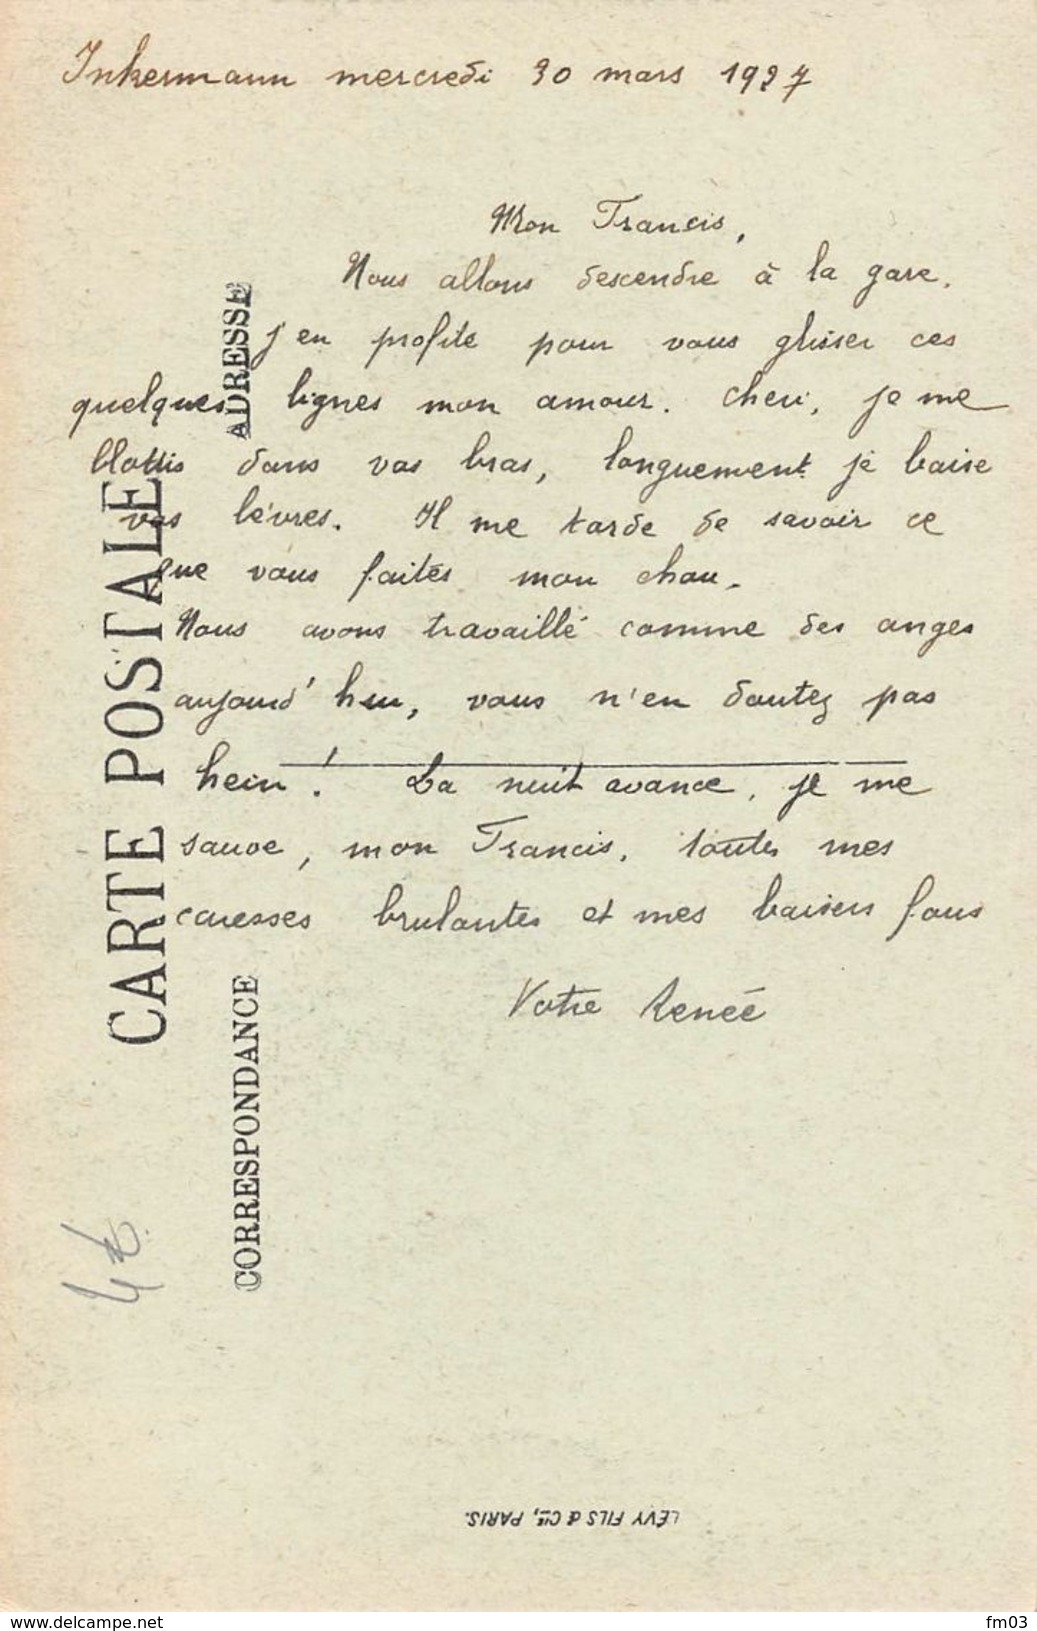 Inkermann mercredi 30 mars 1927
Mon Francis,
Nous allons descendre à la gare,
j'en profite pour vous glisser ces
quelques lignes mon amour. Cheri, je me
blottis dans vos bras, longuement je baise
vos lèvres. Il me tarde de savoir ce
que vous faites mon chou.
Nous avons travaillé comme des anges
aujourd'hui, vous n'en doutez pas
hein! La nuit avance, je me
sauve, mon Francis, toutes mes
caresses brulantes et mes baisers fous
Votre Renée
CARTE POSTALE
ADRESSE
CORRESPONDANCE
LÉVY FILS & Cie, PARIS.
www.delcampe.net
fm03